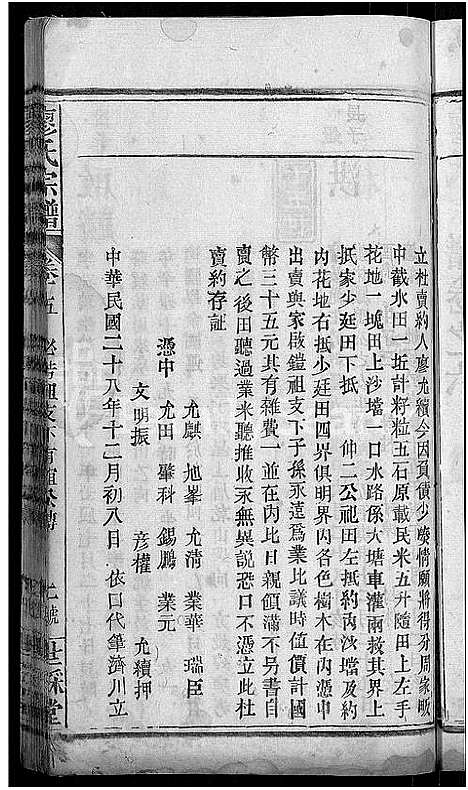 立杜賣約人廖允續今因負債少喫情願將得分周家畈
中截水田一坵計籽粒五石原載民米五升隨田上左手
花地一塊田上沙壋一口水路係大塘車灌兩救其界上
抵家少廷田下抵 仲二公祀田左抵約內沙壋及約
內花地右抵少廷田四界俱明界內各色樹木在內憑中
出賣與家啟鎧祖支下子孫永遠為業比議時值價計國
幣三十五元其有雜費一並在內比日親領滿不另書自
賣之後田聽過業米聽推收永無異說恐口不憑立此杜
賣約存証
允麒 旭峯 允清 業華 瑞臣
憑中 允田 肇科 錫鵬 業元
文明振 彥權 允續押
中華民國二十八年十二月初八日 依口代筆濟川立
廖氏宗譜
卷五
七號
世綵堂